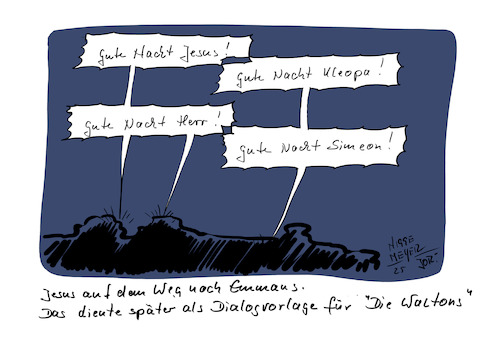 Gute Nacht Jesus!
Gute Nacht Kleopa!
Gute Nacht Herr!
Gute Nacht Simeon!
NIPPE
MEYER
25
Jesus auf dem Weg nach Emmaus.
Das diente später als Dialogvorlage für "Die Waltons"